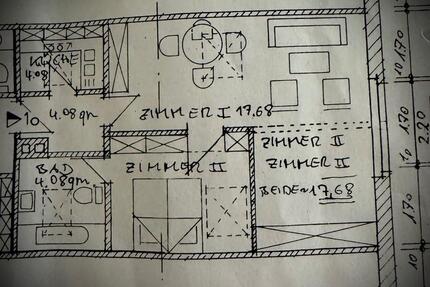 KÜCHE
4.08
10
4.08qm
ZIMMER I 17,68
ZIMMER II
ZIMMER II
ZIMMER II
BEIDE=17,68
BAD
4.08qm.
10 1.70
1.70
2.20
10
1.70
10